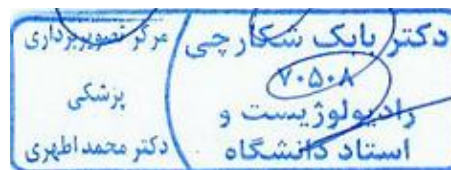 دکتر بابک شکارچی
۷۰۵۰۸
رادیولوژیست و
استاد دانشگاه
مرکز تصویربرداری
پزشکی
دکتر محمد اطهری